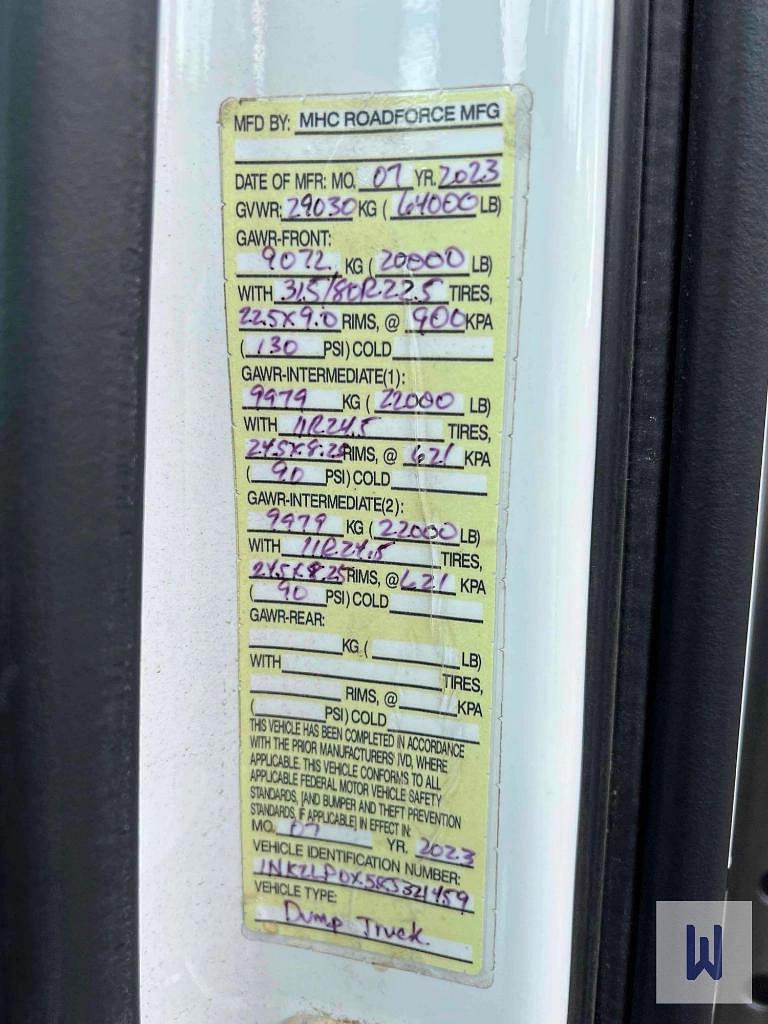 MFD BY: MHC ROADFORCE MFG
DATE OF MFR: MO. 07 YR. 2023
GVWR: 29030 KG ( 64000 LB)
GAWR-FRONT:
9072 KG ( 20000 LB)
WITH 315/80R22.5 TIRES,
22.5x9.0 RIMS, @ 900 KPA
( 130 PSI) COLD
GAWR-INTERMEDIATE(1):
9979 KG ( 22000 LB)
WITH 11R24.5 TIRES,
24.5x8.25 RIMS, @ 621 KPA
( 90 PSI) COLD
GAWR-INTERMEDIATE(2):
9979 KG ( 22000 LB)
WITH 11R24.5 TIRES,
24.5x8.25 RIMS, @ 621 KPA
( 90 PSI) COLD
GAWR-REAR:
KG ( LB)
WITH TIRES,
RIMS, @ KPA
( PSI) COLD
THIS VEHICLE HAS BEEN COMPLETED IN ACCORDANCE
WITH THE PRIOR MANUFACTURERS IVD, WHERE
APPLICABLE. THIS VEHICLE CONFORMS TO ALL
APPLICABLE FEDERAL MOTOR VEHICLE SAFETY
STANDARDS, [AND BUMPER AND THEFT PREVENTION
STANDARDS, IF APPLICABLE] IN EFFECT IN:
MO. 07 YR. 2023
VEHICLE IDENTIFICATION NUMBER:
VEHICLE TYPE:
Dump Truck.
W